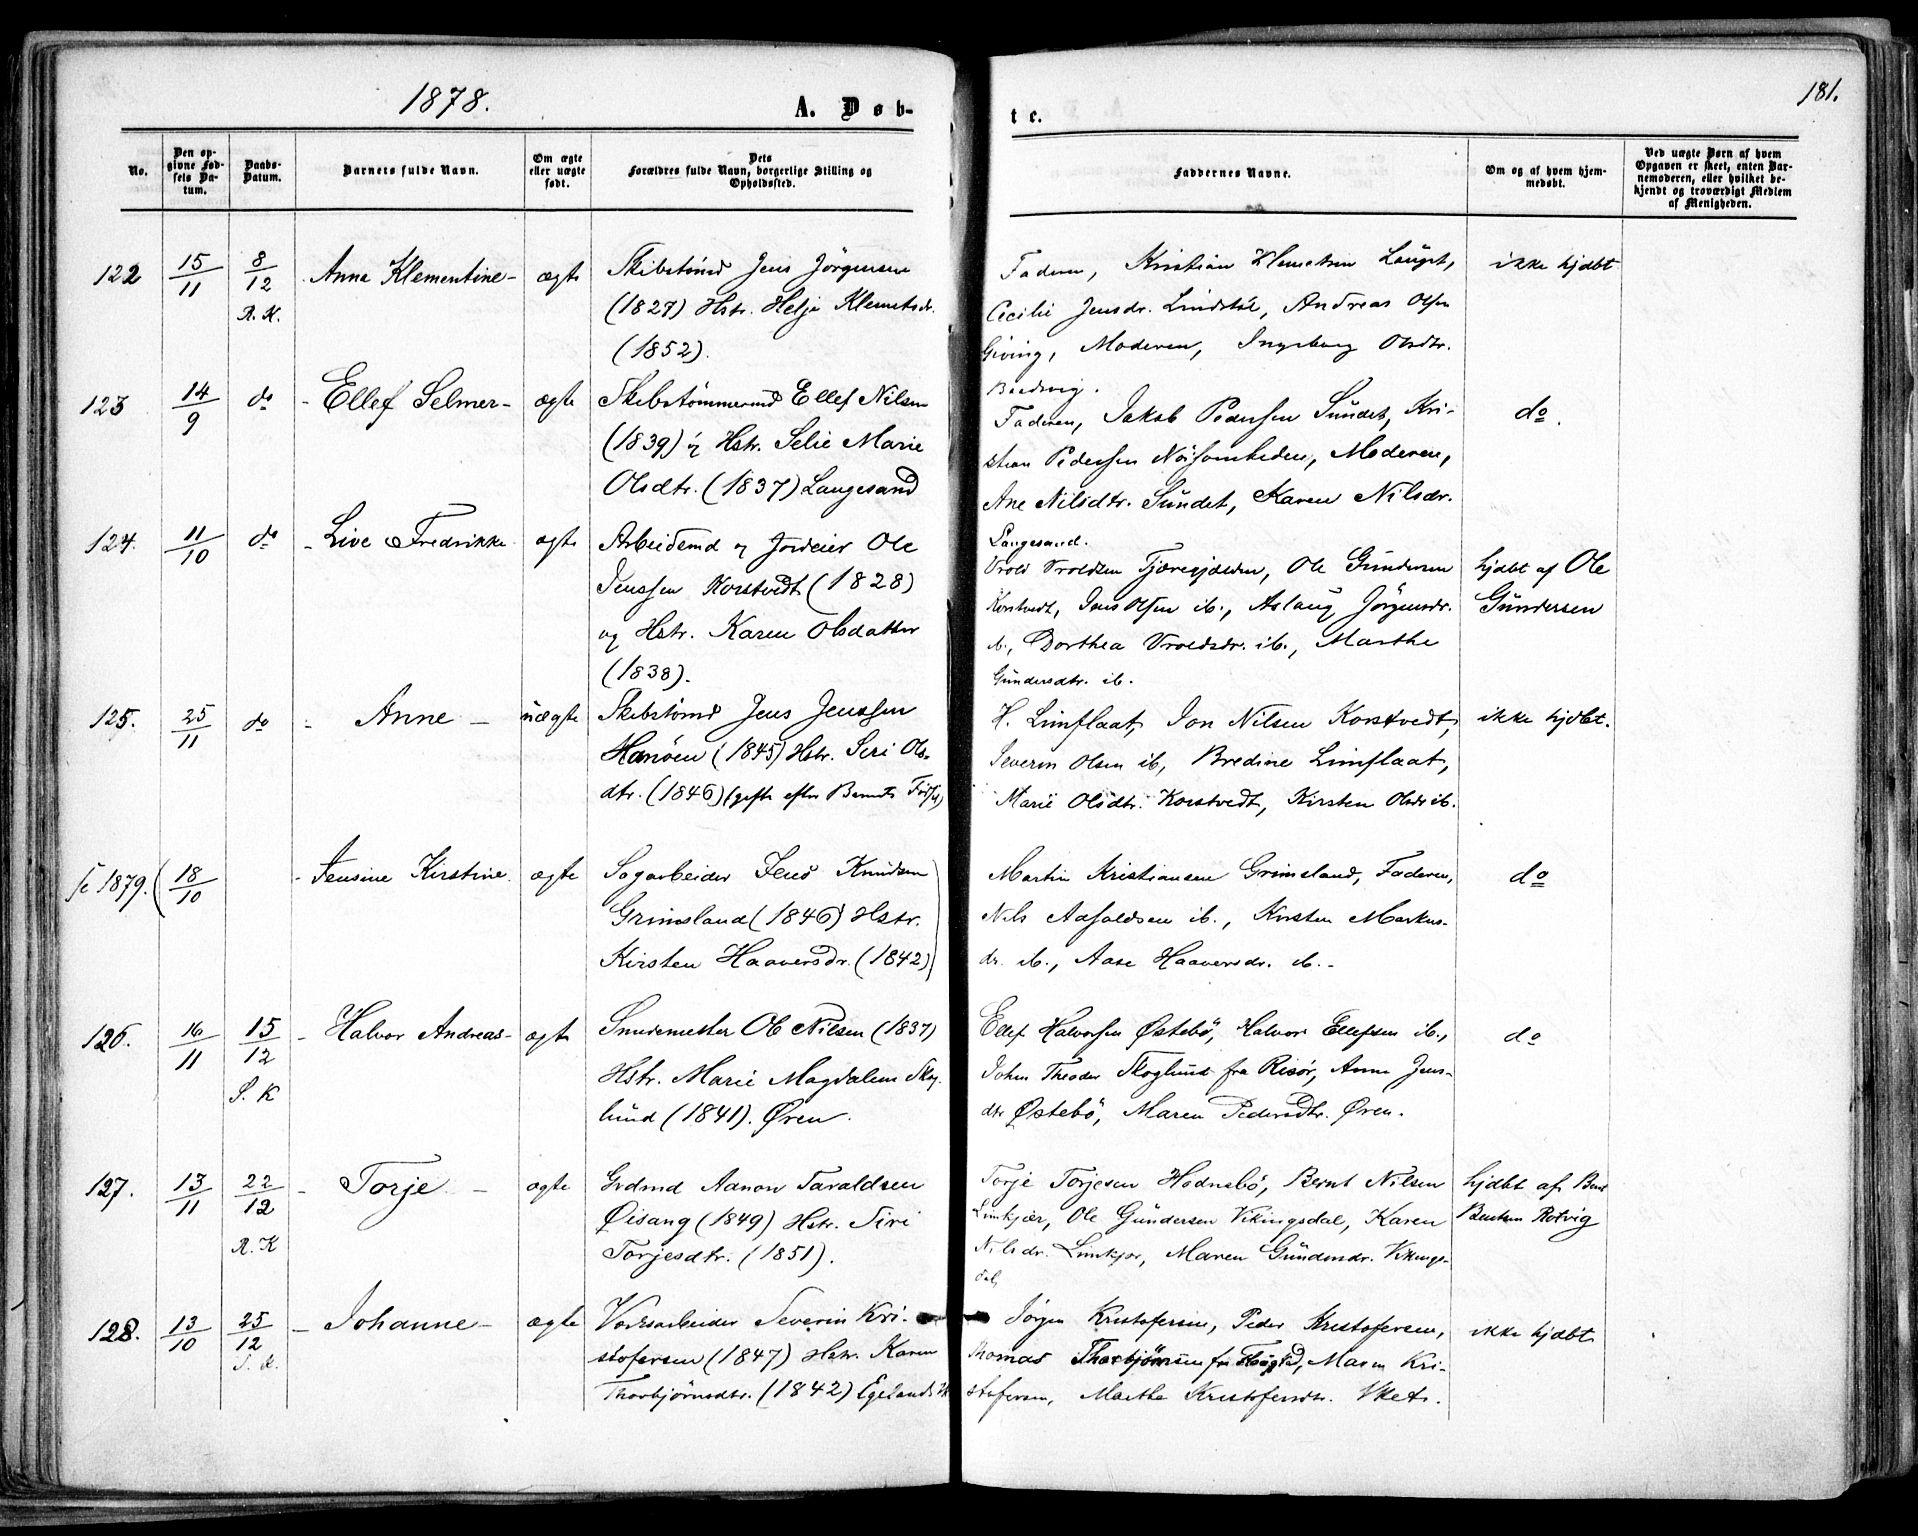 1878.
A. Døb-
te.
181.
No.
Den op-
givne Fød-
sels Da-
tum.
Daabs-
Datum.
Barnets fulde Navn.
Om ægte
eller uægte
født.
Dets
Forældres fulde Navn, borgerlige Stilling og
Opholdssted.
Faddernes Navne.
Om og af hvem hjem-
medøbt.
Ved uægte Børn af hvem
Opgaven er skeet, enten Bar-
nemoderen, eller hvilket be-
kjendt og troværdigt Medlem
af Menigheden.
122 15/11 8/12 R. K. Anna Klementine - ægte
Skibstømd Jens Jörgensen
(1827) Hstr. Helje Klemetsdr.
(1852).
Faderen, Kristian Klemetsen Lauget,
Cecilie Jensdr. Lindstøl, Andreas Olsen
Giving, Moderen, Ingeborg Olsdtr.
ikke hjdbt
123 14/9 do - Ellef Selmer - ægte
Skibstømmermd Ellef Nilsen
(1839) og Hstr. Selie Marie
Olsdtr. (1837) Langesand
Faderen, Jakob Pedersen Sundet, Kri-
stian Pedersen Nøisomheden, Moderen,
Ane Nilsdtr. Sundet, Karen Nilsdr.
Langesand.
do.
124. 11/10 do - Live Fredrikke ægte
Arbeidsmd og Jordeier Ole
Jenssen Korstvedt (1828)
og Hstr. Karen Olsdatter
(1838).
Vrold Vroldsen Tjæregjælden, Ole Gundersen
Korstvedt, Jens Olsen ib., Aslaug Jørgensdr.
ib., Dorthea Vroldsdr. ib., Marthe
Gundersdtr. ib.
hjdbt af Ole
Gundersen
125. 25/11 do - Anne - uægte
Skibstømd Jens Jenssen
Hanøen (1845) Hstr. Seri Ols-
dtr. (1846) (gift efter Bernt
H. Limflaat, Jon Nilsen Korstvedt,
Severin Olsen ib, Bredine Limflaat,
Marie Olsdtr. Korstvedt, Kirsten Olsdr ib.
ikke hjdbt.
1879. (18/10 - Jensine Kirstine. ægte
Sagarbeider Jens Knudsen
Grimsland (1846) Hstr.
Kirsten Haaversdr. (1842)
Martin Kristiansen Grimsland, Faderen,
Nils Adsoldsen ib., Kirsten Markus-
dr. ib., Aase Haaversdr. ib. -
do
126. 16/11 15/12 S. K - Halvor Andreas - ægte
Smedemester Ole Nilsen (1837)
Hstr. Marie Magdalene Skog
lund (1841). Øren.
Ellef Halvorsen Østebö, Halvor Ellefsen ib.,
John Theodor Skoglund fra Risør, Anne Jens-
dtr Østebö, Maren Pedersdtr. Øren.
do
127. 13/11 22/12 R. K - Torje - ægte
Grdmd Aanon Taraldsen
Øisang (1849) Hstr. Siri
Torjesdtr. (1851).
Torje Torjesen Hodnebö, Bernt Nilsen
Limkjær, Ole Gundersen Vikingsdal, Karen
Nilsdr. Limkjær, Maren Gundersdr. Vikings-
dal,
hjdbt af Bent
Bentsen Rotvig
128. 13/10 25/12 S. K. - Johanne - ægte
Værksarbeider Severin Kri-
stofersen (1847) Hstr. Karen
Thorbjørnsdtr. (1842) Egelands
Jørgen Kristofersen, Peder Kristofersen,
Thomas Thorbjörnsen fra Skogstad, Maren Kri-
stofersen, Marthe Kristofersdtr. Vket.
ikke hjdbt